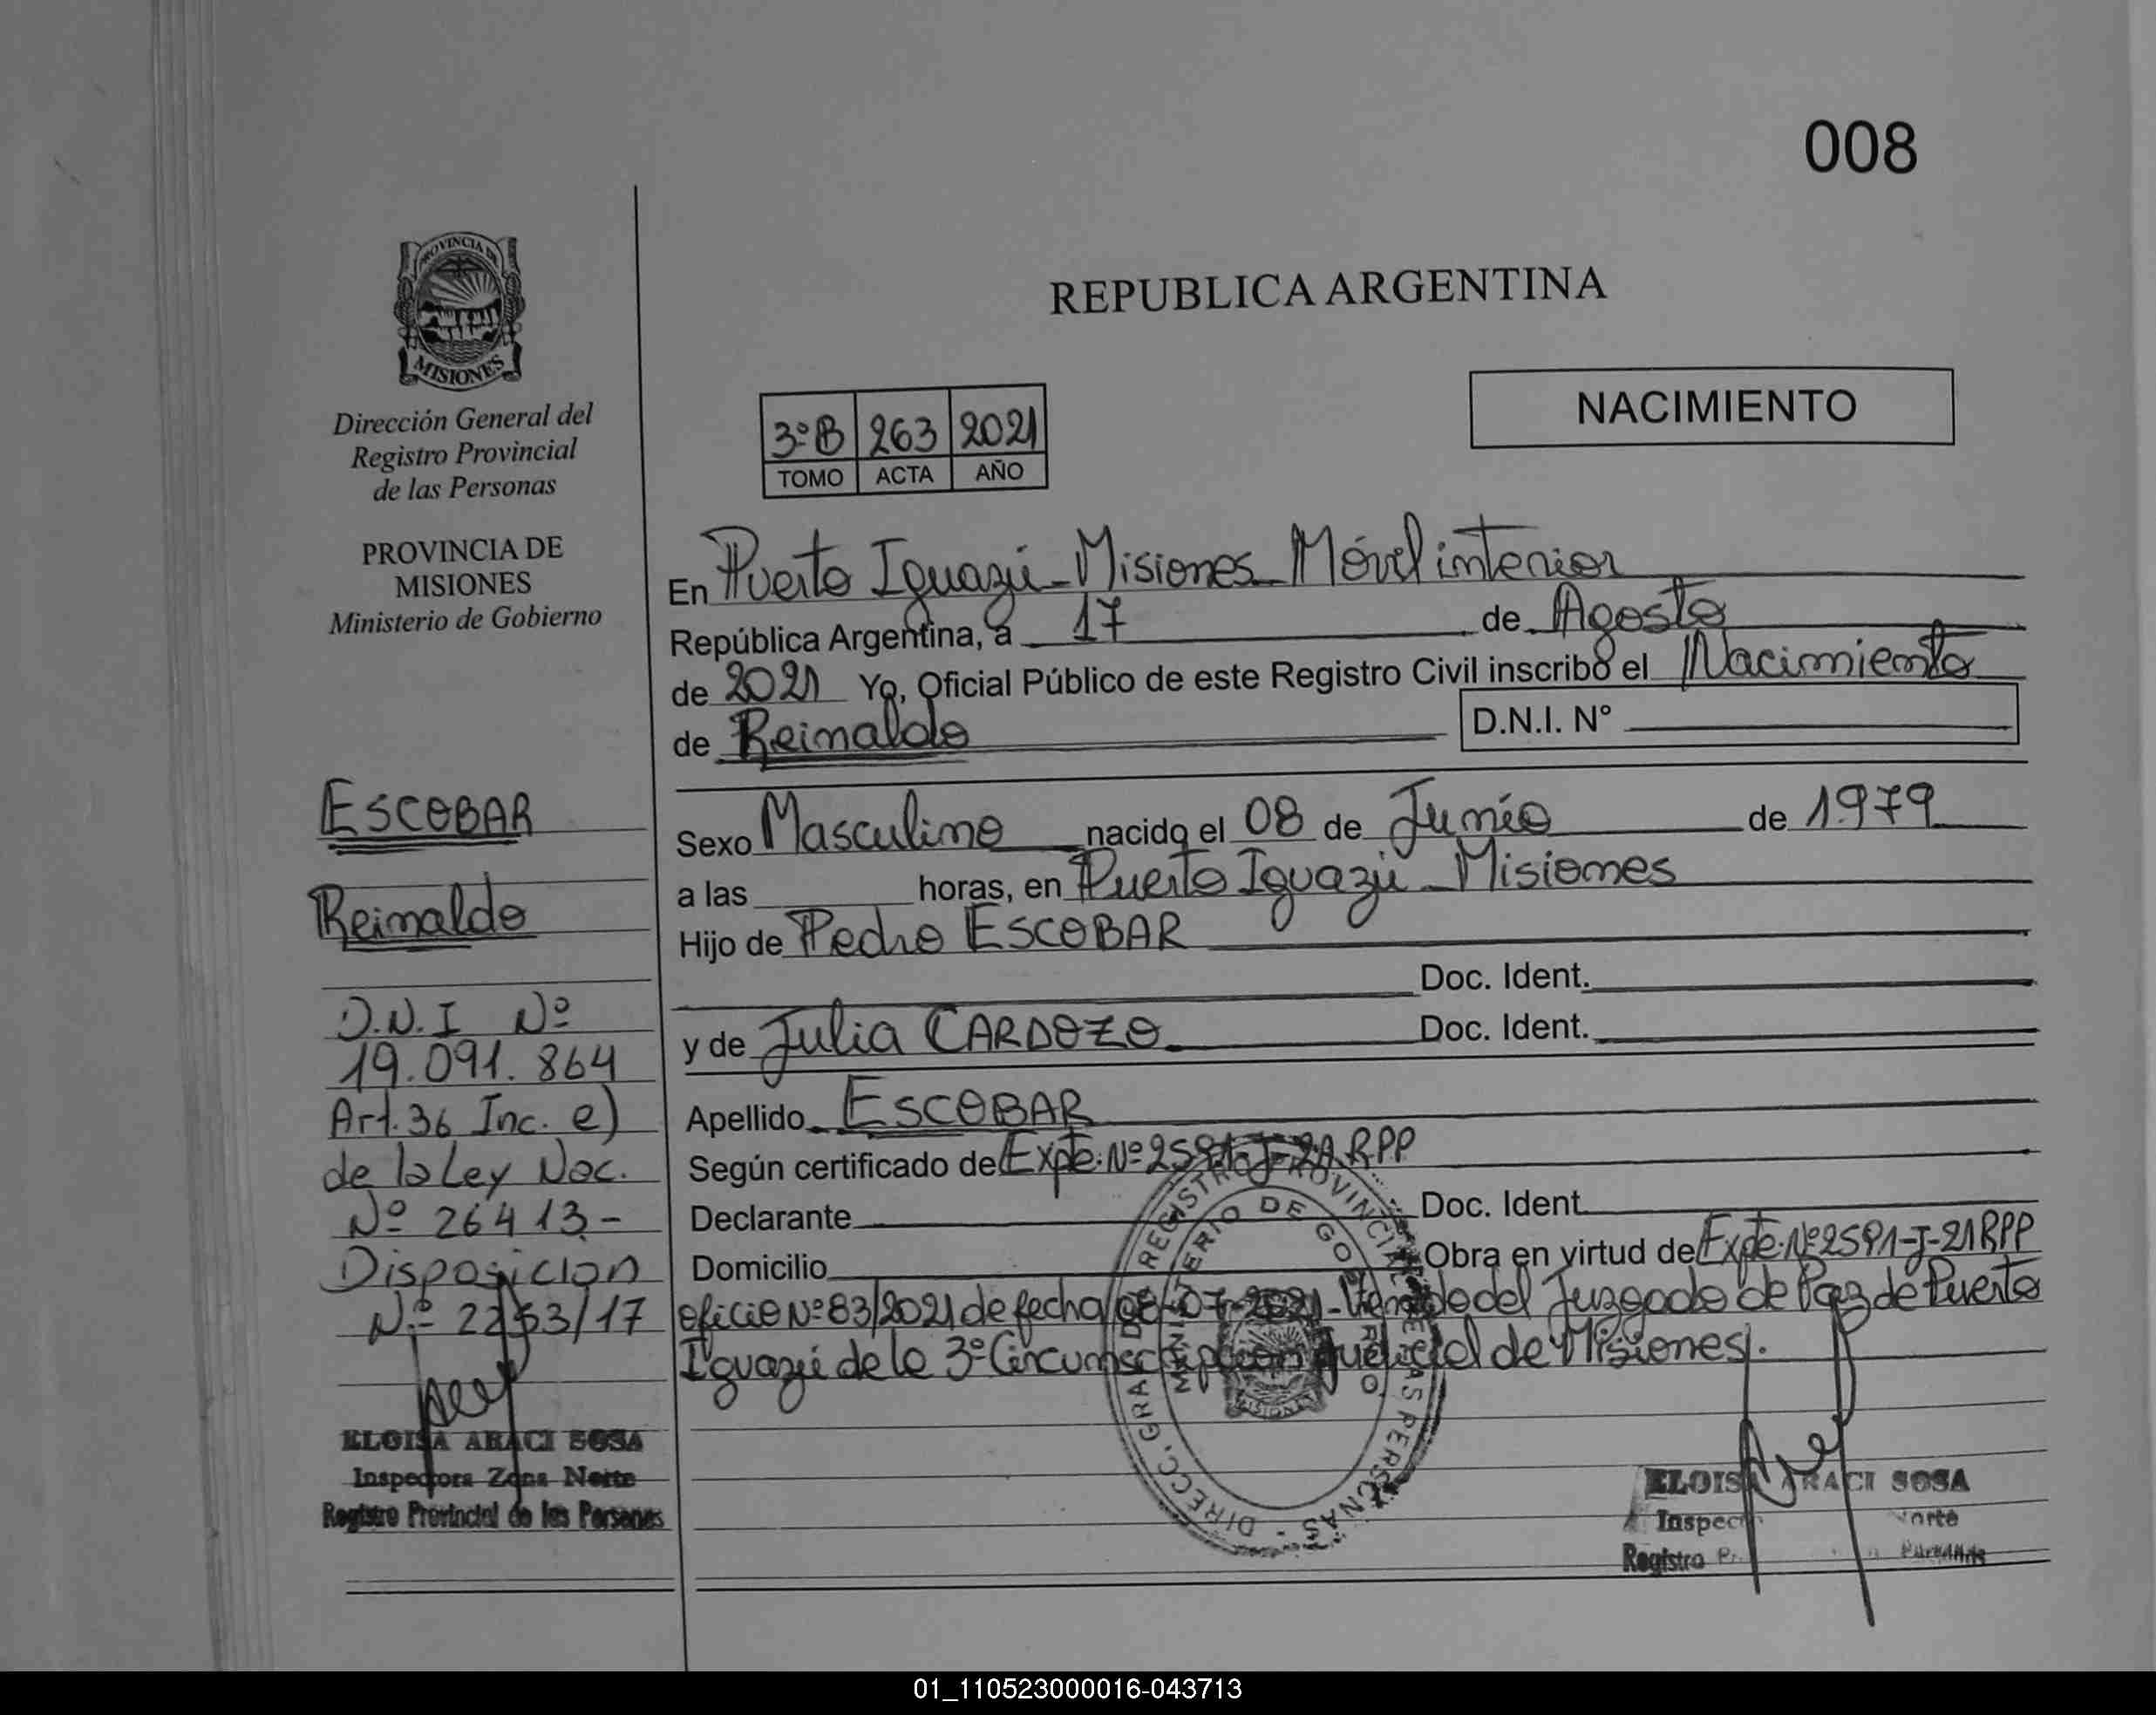 008
PROVINCIA DE
MISIONES
Dirección General del
Registro Provincial
de las Personas
PROVINCIA DE
MISIONES
Ministerio de Gobierno
ESCOBAR
Reinaldo
D.N.I Nº
19.091.864
Art.36 Inc. e)
de la Ley Nac.
Nº 26413-
Disposicion
Nº 2253/17
ELOISA ARACI SOSA
Inspectora Zona Norte
Registro Provincial de las Personas
REPUBLICA ARGENTINA
NACIMIENTO
3ºB 263 2021
TOMO ACTA AÑO
En Puerto Iguazú-Misiones-Móvil interior
República Argentina, a 17 de Agosto
de 2021 Yo, Oficial Público de este Registro Civil inscribo el Nacimiento
de Reinaldo D.N.I. Nº
Sexo Masculino nacido el 08 de Junio de 1979
a las horas, en Puerto Iguazú-Misiones
Hijo de Pedro ESCOBAR
Doc. Ident.
y de Julia CARDOZO Doc. Ident.
Apellido ESCOBAR
Según certificado de Expte.Nº2591-J-21 RPP
Declarante Doc. Ident.
Domicilio Obra en virtud de Expte.Nº2591-J-21RPP
oficio Nº83/2021 de fecha 08-07-2021- del Juzgado de Paz de Puerto
Iguazú de la 3º Circunscripcion Judicial de Misiones.
DIRECC. GRAL. DEL REGISTRO PROVINCIAL DE LAS PERSONAS
MINISTERIO DE GOBIERNO
MISIONES
ELOISA ARACI SOSA
Inspec Norte
Registro
01_110523000016-043713